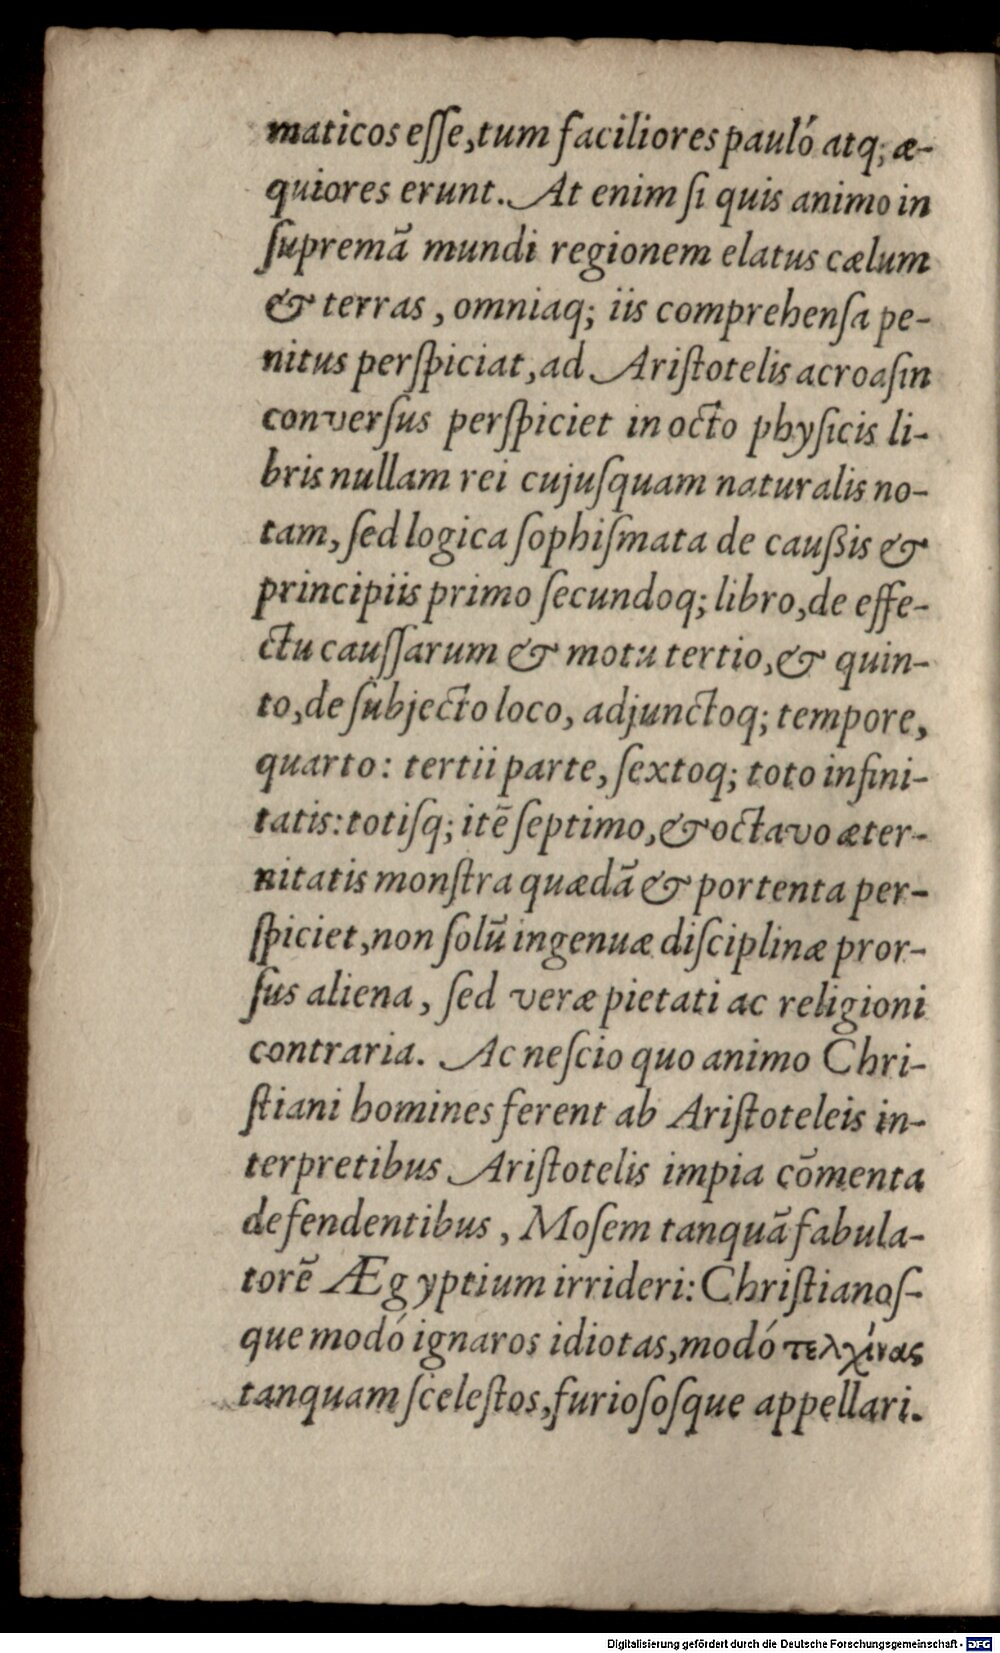 maticos eſſe, tum faciliores pauló atq; æ-
quiores erunt. At enim ſi quis animo in
ſupremā mundi regionem elatus cælum
& terras, omniaq; iis comprehenſa pe-
nitus perſpiciat, ad Ariſtotelis acroaſin
converſus perſpiciet in octo phyſicis li-
bris nullam rei cujuſquam naturalis no-
tam, ſed logica ſophiſmata de caußis &
principiis primo ſecundoq; libro, de effe-
ctu cauſſarum & motu tertio, & quin-
to, de ſubjecto loco, adjunctoq; tempore,
quarto: tertii parte, ſextoq; toto infini-
tatis: totiſq; itē ſeptimo, & octavo æter-
nitatis monſtra quædā & portenta per-
ſpiciet, non ſolū ingenuæ diſciplinæ pror-
ſus aliena, ſed veræ pietati ac religioni
contraria. Ac neſcio quo animo Chri-
ſtiani homines ferent ab Ariſtoteleis in-
terpretibus Ariſtotelis impia cōmenta
defendentibus, Moſem tanquā fabula-
torē Ægyptium irrideri: Chriſtianoſ-
que modó ignaros idiotas, modó τελχίνας
tanquam ſceleſtos, furioſoſque appellari.
Digitalisierung gefördert durch die Deutsche Forschungsgemeinschaft - DFG